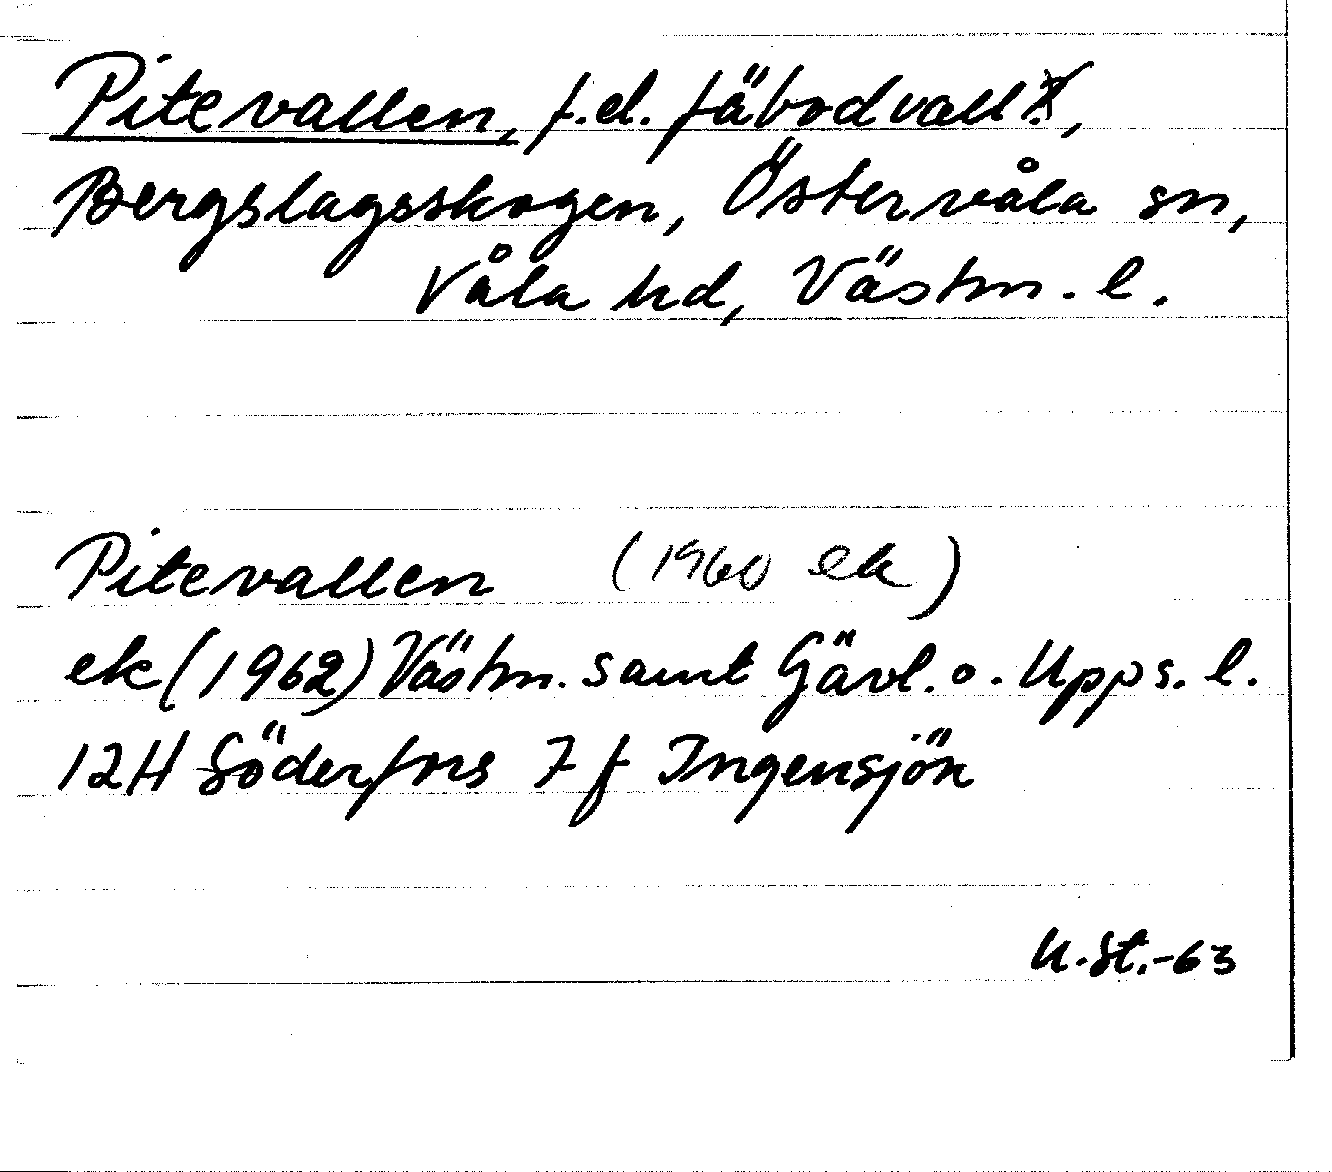 Pitevallen, f.d. fäbodvall,
Bergslagsskogen, Östervåla sn,
Våla hd, Västm. l.
Pitevallen (1960 ek)
ek (1962) Västm. samt Gävl. o. Upps. l.
12H Söderfors 7 f Ingensjön
U.St.-63